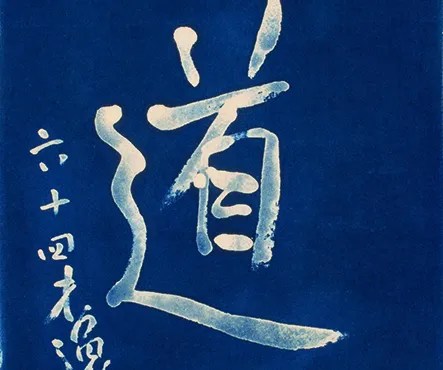 道
六十四老